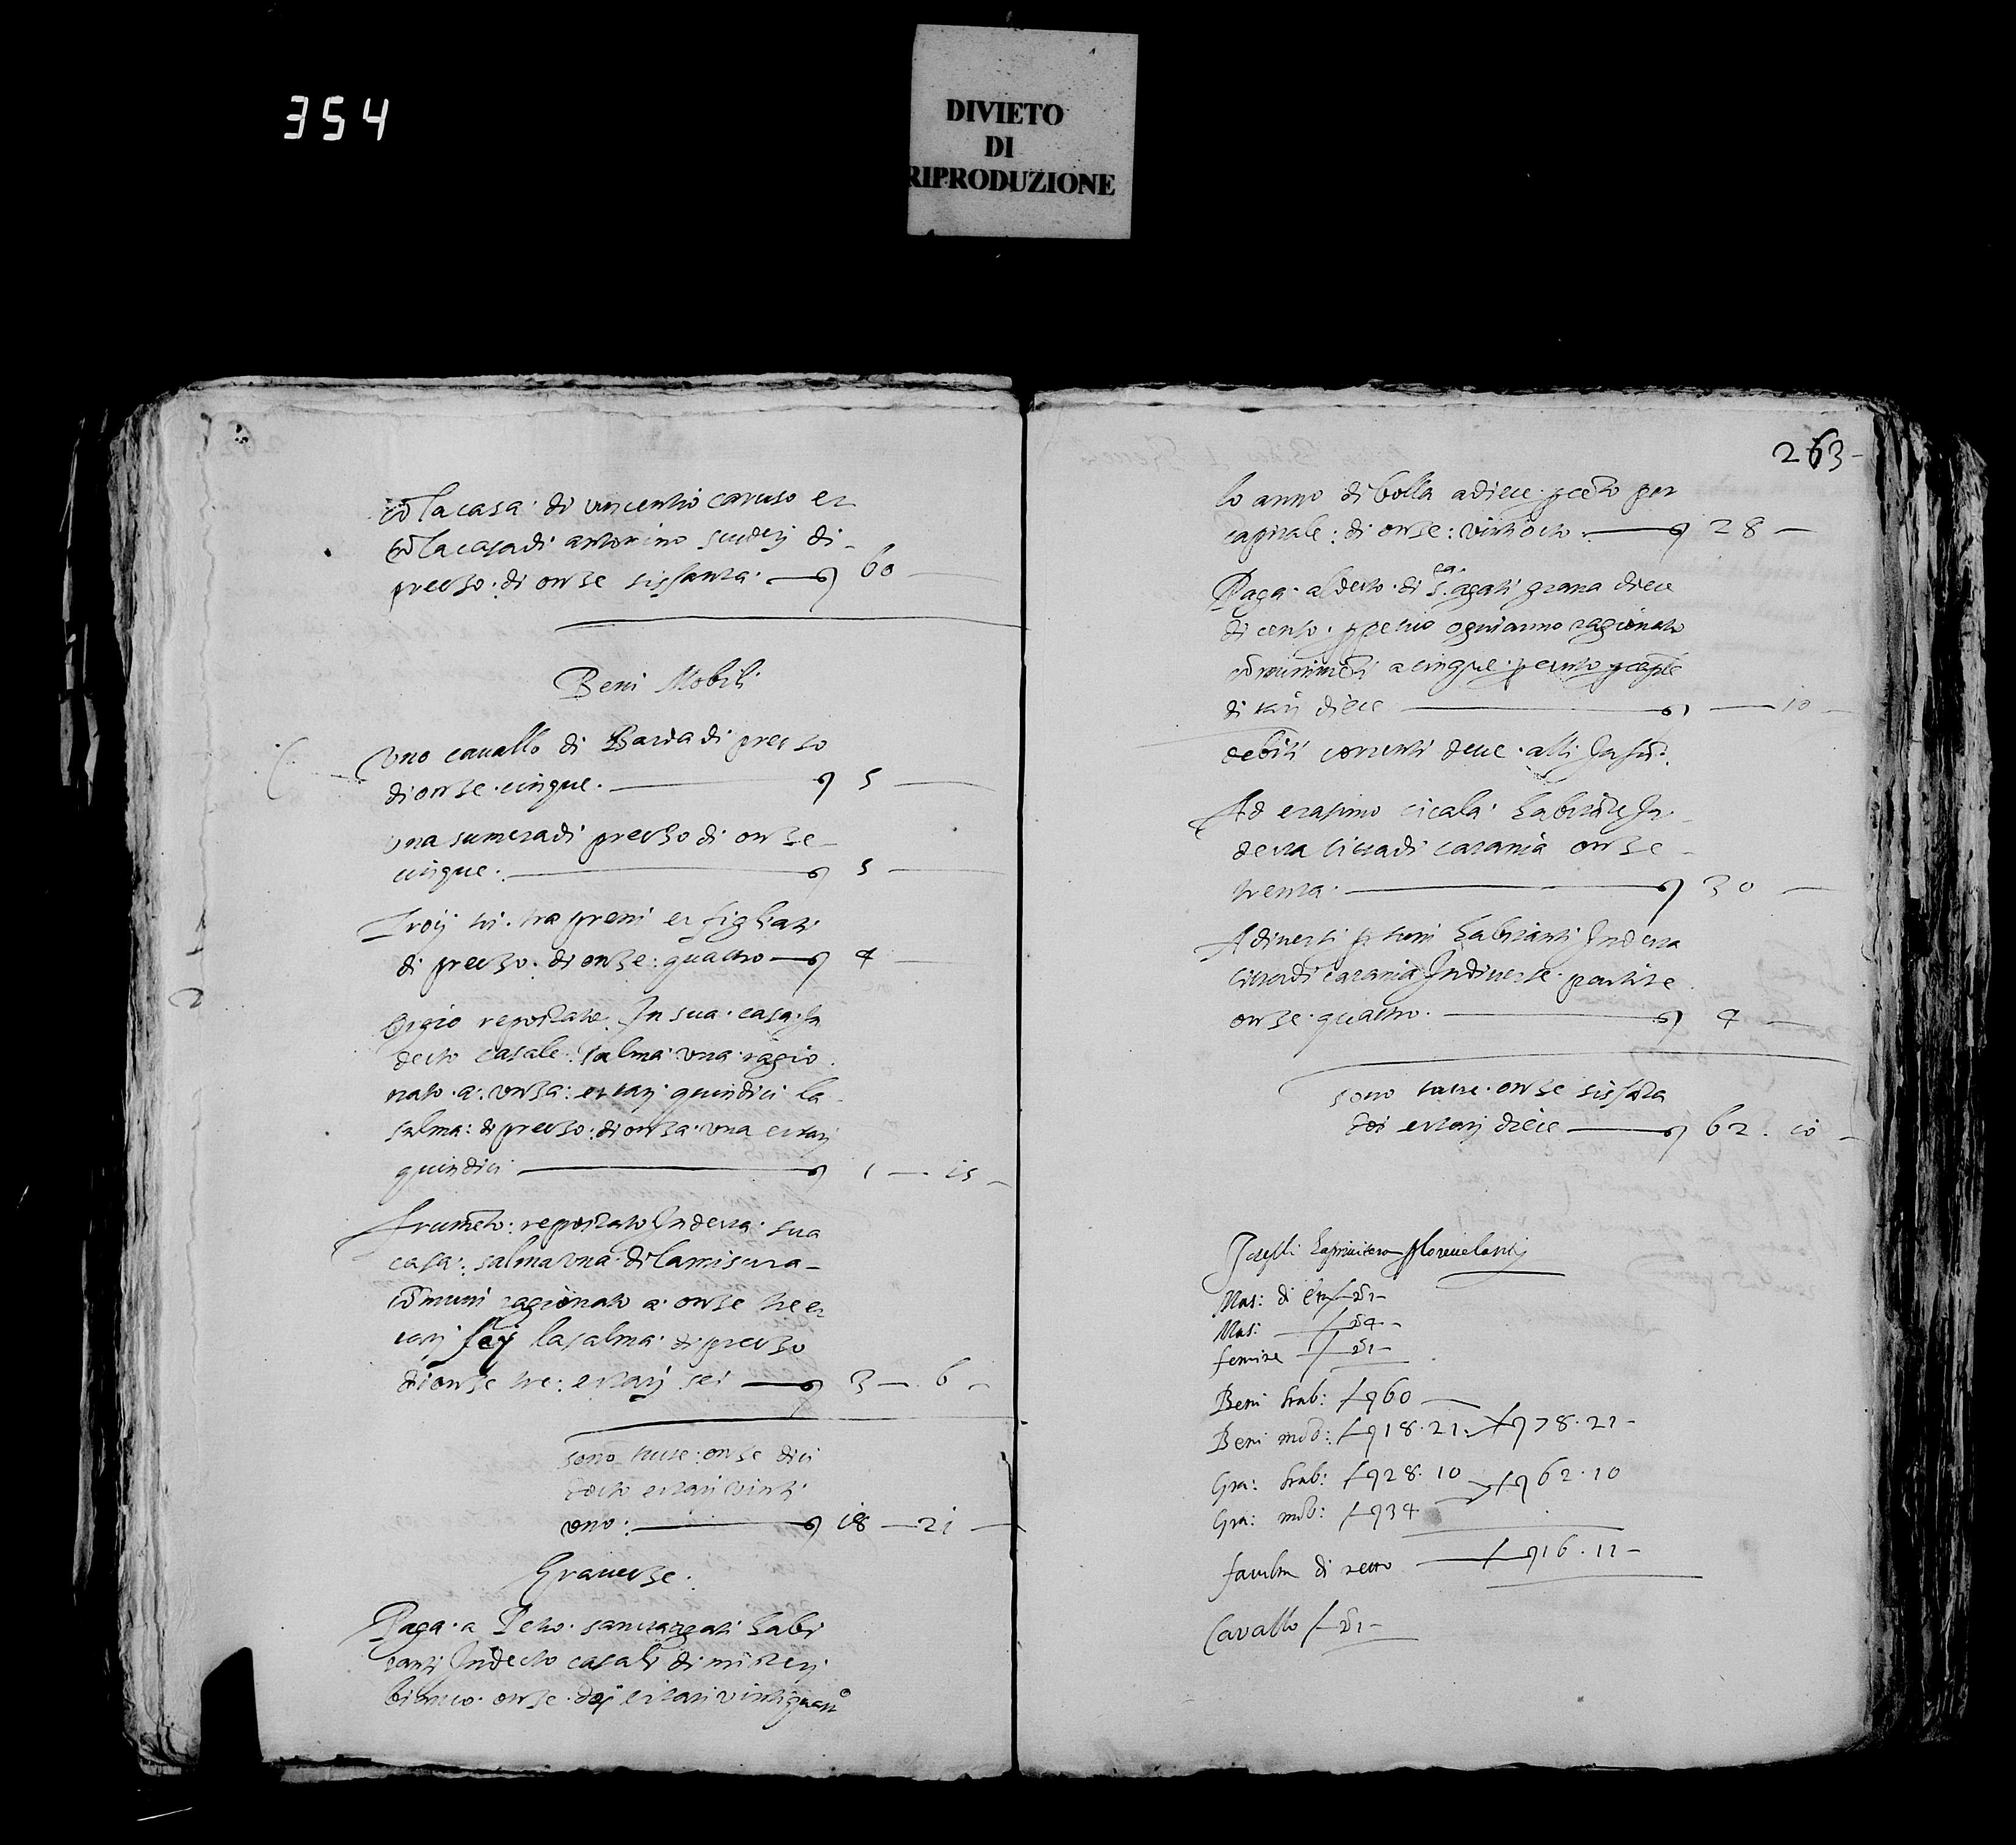 354
DIVIETO
DI
RIPRODUZIONE
cō la casa di vincentio caruso et
cō la casa di antonino scuderi di
prezzo di onze sissanta 60
Beni Mobili
Uno cauallo di Barda di prezzo
di onze cinque 5
una sumera di prezzo di onze
cinque 5
Troij tri tra preni et figliati
di prezzo di onze quattro 4
Orgio repostato In sua casa In
detto casale salma una ragio
nato a unza et tarj quindici la
salma di prezzo di onza una et tarj
quindici 1 15
frumēto repostato In detta sua
casa salma una di la misura
cōmuni ragionato a onze tre et
tarj sej la salma di prezzo
di onze tre et tarj sei 3 6
sono tutte onze dici
docto et tarj vinti
uno 18 21
Grauezze
Paga a Petro habi
tanti In detto casali di misteri
bianco onze doi et tari vintiquatt°
263
lo anno di bolla a diece p cēto per
capitale di onze vintiocto 28
Paga al detto di S.ta agati grana diece
di censo ppetuo ogni anno ragionato
a cinque p cento
di tarj diece 10
debiti correnti deue alli
Ad erasimo cicala habitāte In
detta citta di catania onze
trenta 30
A diuersi habitanti In detta
citta di catania In diuerse partite
onze quattro 4
sono tutte onze sissāta
doi et tarj diece 62 10
Mas: di
Mas: 4
femine
Beni stab: 60
Beni mob: 18.21 78.21
Gra: stab: 28.10 62.10
Gra: mob: 34
di netto 16.11
Cavallo 1